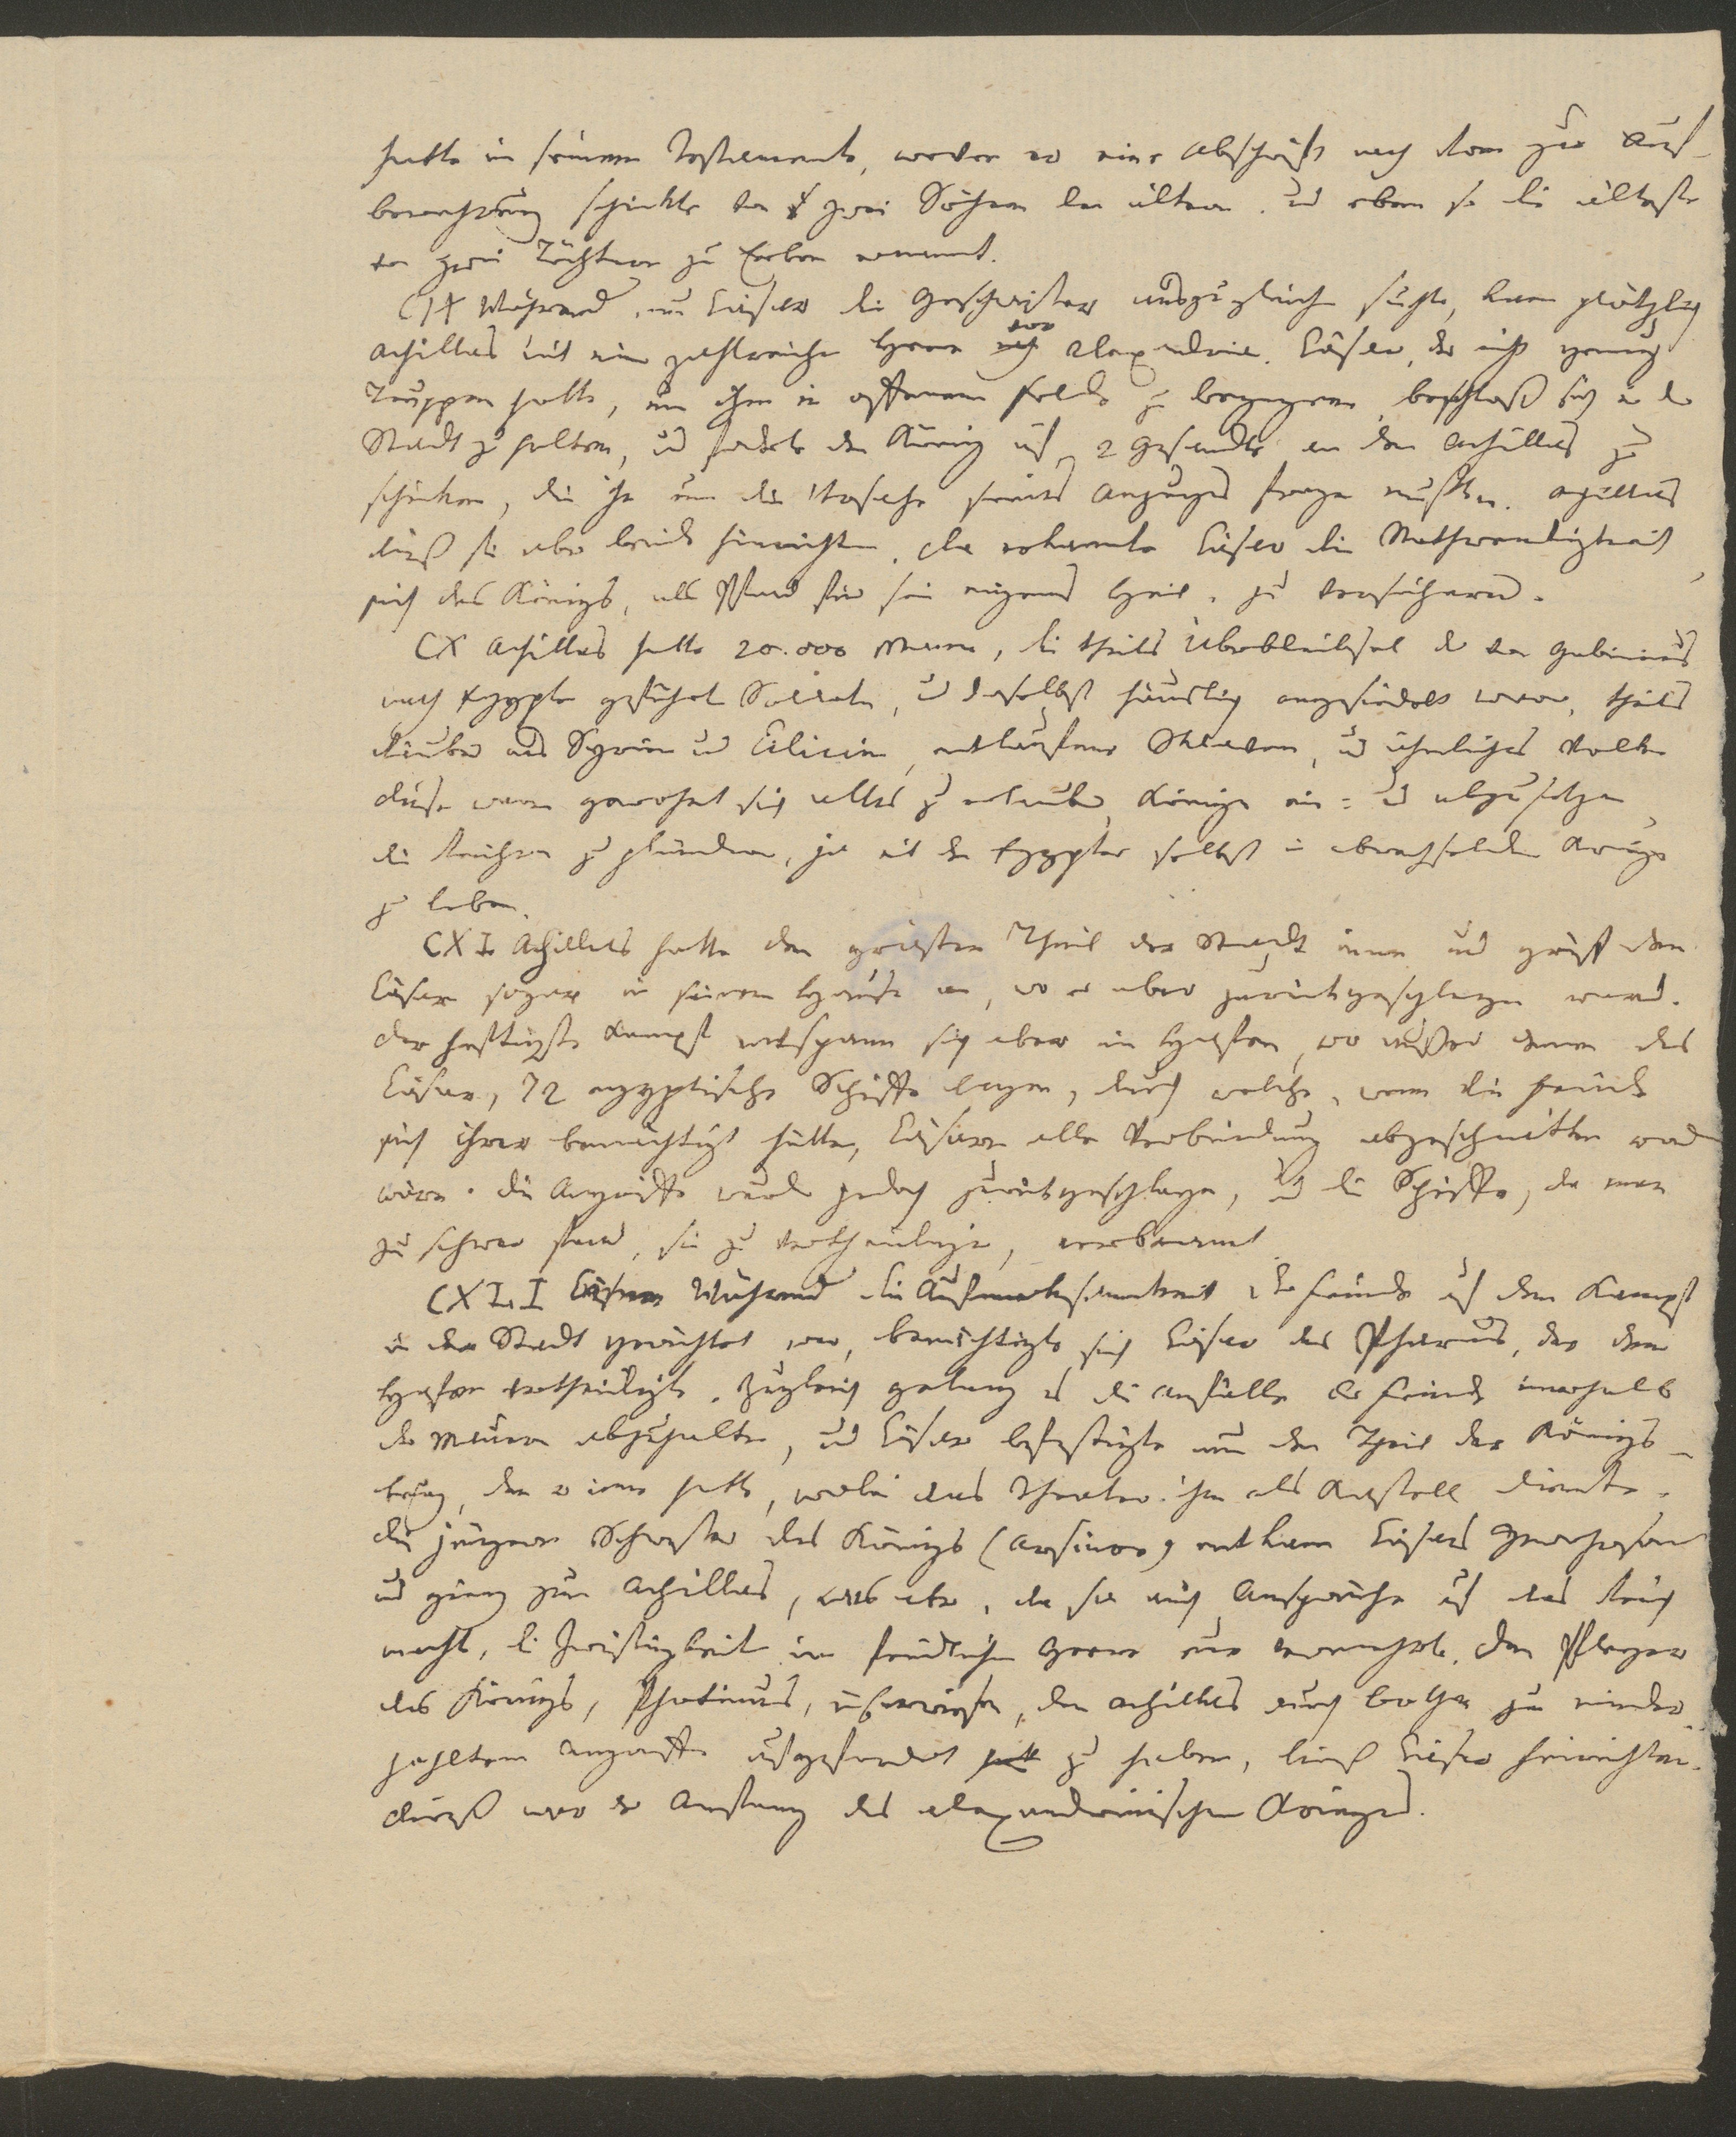 hatte in seinem Testamente, wovon er eine Abschrift nach Rom zur Auf-
bewahrung schickte von zwei Söhnen den ältern, und eben so die älteste
von zwei Töchtern zu Erben ernannt.
CIX Während nun Cäsar die Geschwister auszugleichen suchte, kam plötzlich
Achillas mit einem zahlreichen Heere vor Alexandria. Cäsar, der nicht genug
Truppen hatte, um ihm in offenem Felde zu begegnen, beschloß sich in der
Stadt zu halten, und forderte den König auf, 2 Gesandte an den Achillas zu
schicken, die ihn um die Ursache seines Anzuges fragen mußten. Achillas
ließ sie aber beide hinrichten. Da erkannte Cäsar die Nothwendigkeit,
sich des Königs, als Pfand für sein eigenes Heil, zu versichern.
CX Achillas hatte 20.000 Mann, die theils Überbleibsel der von Gabinius
nach Egypten geführten Soldaten, und daselbst häuslich angesiedelt waren, theils
Räuber aus Syrien und Cilicien, entlaufene Sklaven, und ähnliches Volk.
Diese waren gewohnt sich alles zu erlauben, Könige ein- und abzusetzen,
die Reichen zu plündern, ja mit den Egyptern selbst in abwechselnden Kriege
zu leben.
CXI. Achillas hatte den größten Theil der Stadt inne und griff den
Cäsar sogar in seinem Hause an, wo er aber zurückgeschlagen ward.
Der heftigste Kampf entspann sich aber im Hafen, wo außer denen des
Cäsar, 72 egyptische Schiffe lagen, durch welche, wenn die Feinde
sich ihrer bemächtigt hätten, Cäsarn alle Verbindung abgeschnitten worden
wäre. Die Angriffe wurden jedoch zurückgeschlagen, und die Schiffe, da man
zu schwer fand, sie zu vertheidigen, verbrannt.
CXII Cäsar Während die Aufmerksamkeit der Feinde auf den Kampf
in der Stadt gerichtet war, bemächtigte sich Cäsar des Pharus, der den
Hafen vertheidigte. Zugleich gelang es die Anfälle der Feinde innerhalb
der Mauern abzuhalten, und Cäsar befestigte nun den Theil der Königs-
burg, den er inne hatte, wobei das Theater ihm als Kastell diente.
Die jüngere Schwester des Königs (Arsinoe) entkam Cäsars Gewahrsam
und ging zum Achillas, was aber, da sie auch Ansprüche auf das Reich
machte, die Zwistigkeiten im feindlichen Heere nur vermehrte. Den Pfleger
des Königs, Photinus, überwiesen, den Achillas durch Bothen zu wieder
holtem Angriffe aufgefordert hatte zu haben, ließ Cäsar hinrichten.
Dieß war der Anfang des alexandrinischen Krieges.